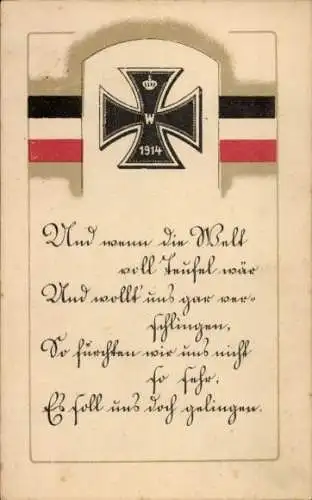 W
1914
Und wenn die Welt
voll Teufel wär
Und wollt uns gar ver-
schlingen,
So fürchten wir uns nicht
so sehr,
Es soll uns doch gelingen.